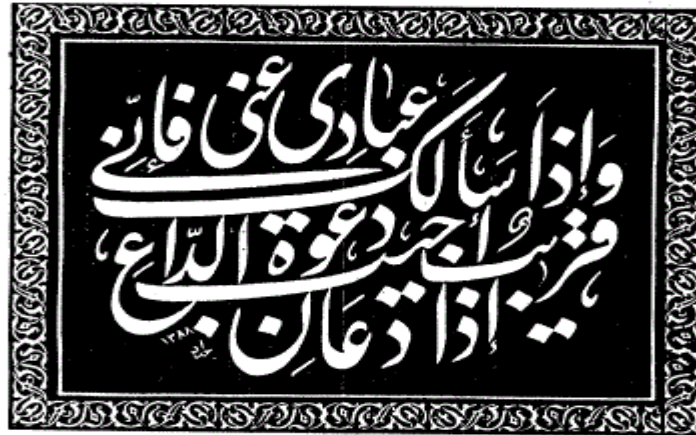 وَإِذَا سَأَلَكَ عِبَادِي عَنِّي فَإِنِّي
قَرِيبٌ أُجِيبُ دَعْوَةَ الدَّاعِ
إِذَا دَعَانِ
١٣٨٨